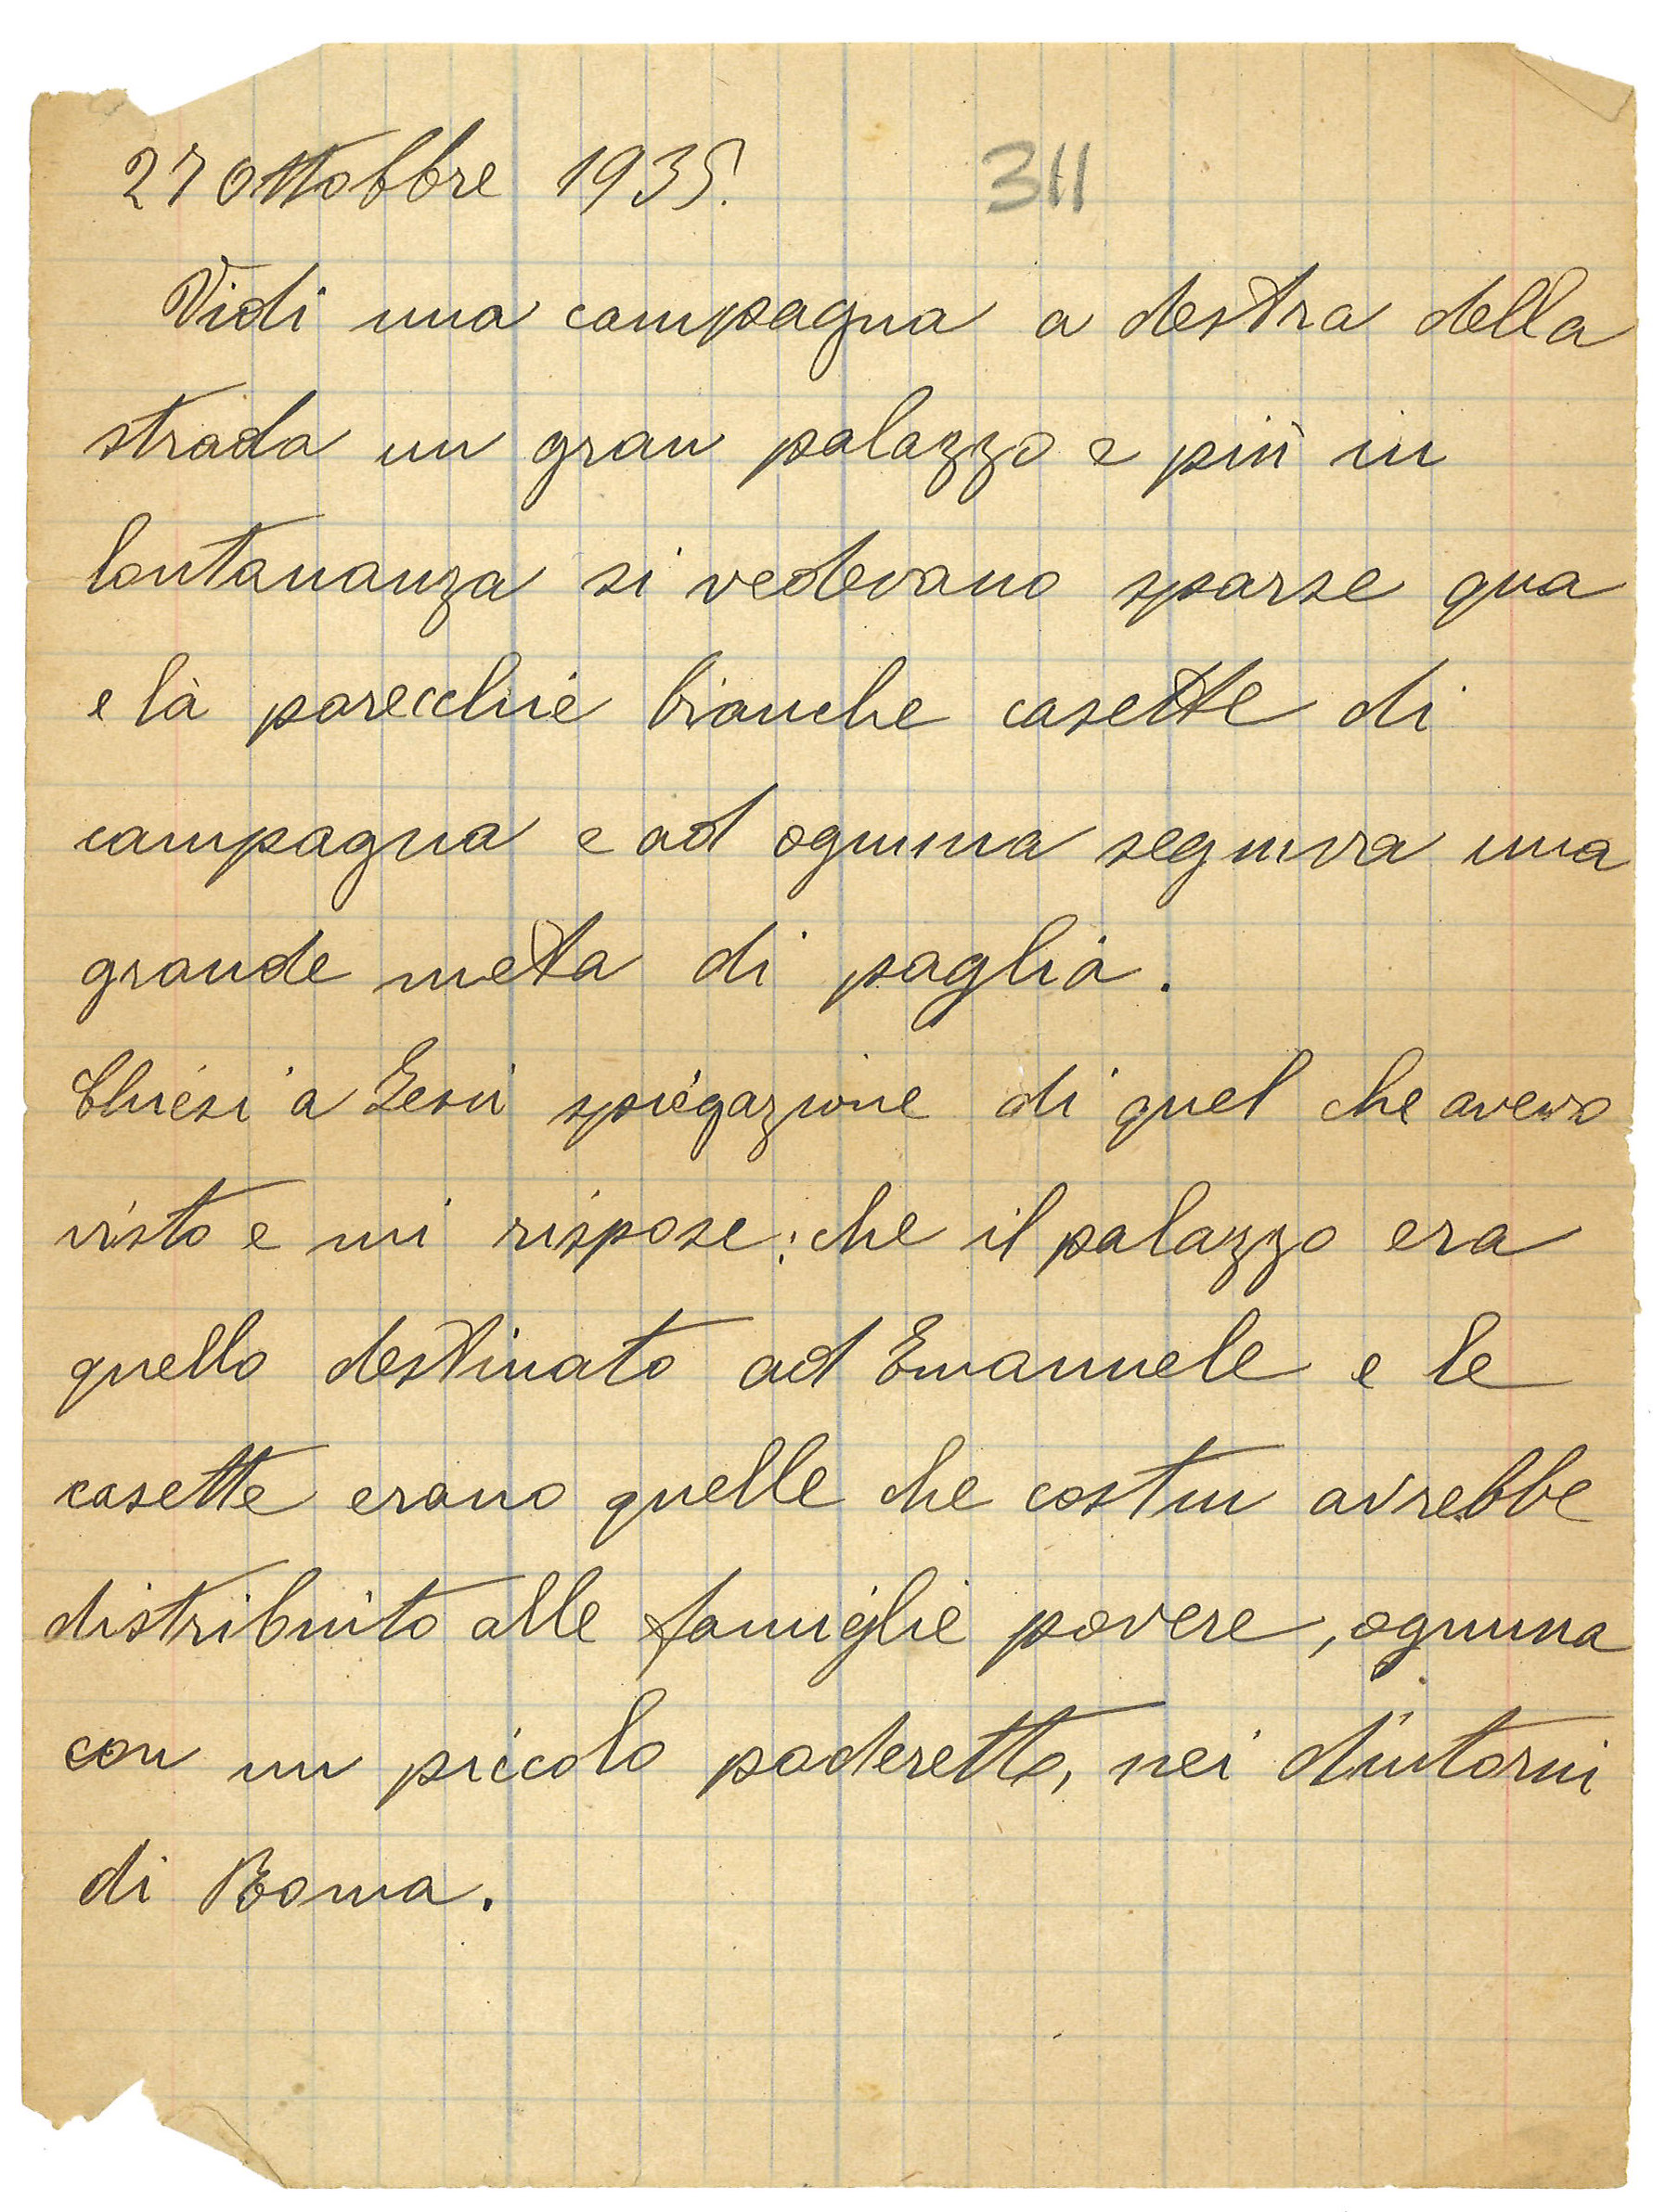 27 Ottobbre 1935. 311
Vidi una campagna a destra della
strada un gran palazzo e più in
lontananza si vedevano sparse qua
e là parecchie bianche casette di
campagna e ad ognuna seguiva una
grande meta di paglia.
Chiesi a Gesù spiegazione di quel che avevo
visto e mi rispose: che il palazzo era
quello destinato ad Emanuele e le
casette erano quelle che costui avrebbe
distribuito alle famiglie povere, ognuna
con un piccolo poderetto, nei d'intorni
di Roma.